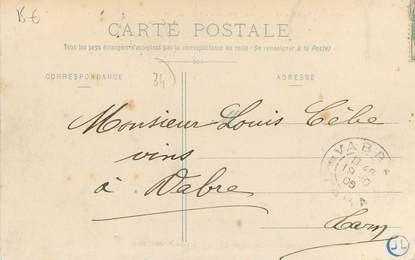 15 €
CARTE POSTALE
Tous les pays étrangers n'acceptent pas la correspondance au recto (Se renseigner à la Poste)
CORRESPONDANCE
34
ADRESSE
Monsieur Louis Cèbe
vins
à Vabre
Tarn
VABRE
JL